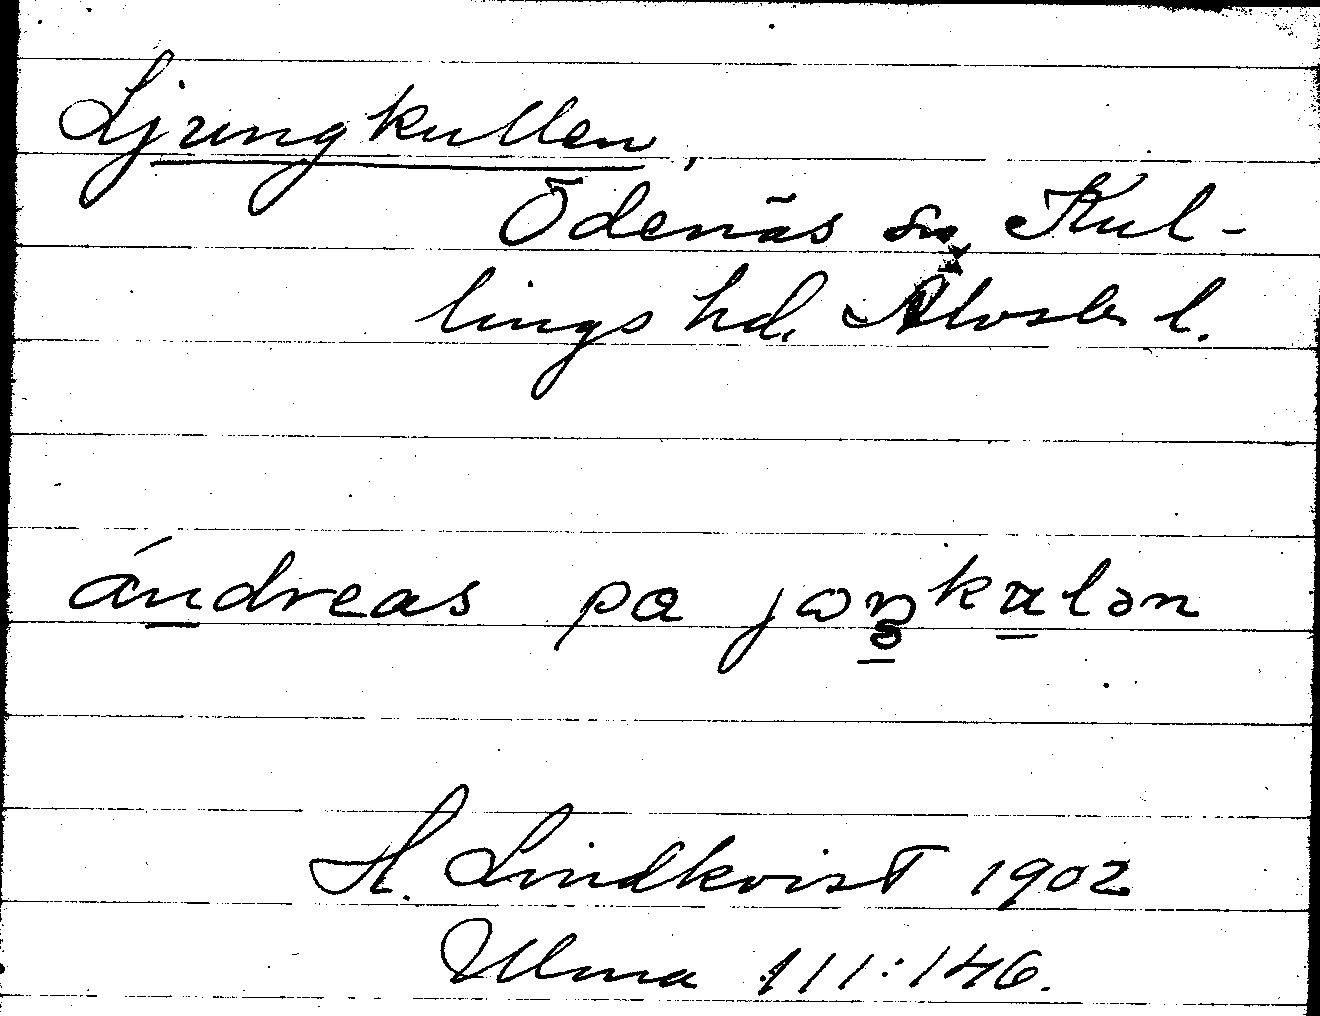 Ljungkullen,
Ödenäs sn, Kul-
lings hd. Älvsb. l.
ándreas pa jɷŋkulən
H. Lindkvist 1902
Ulma 111:146.